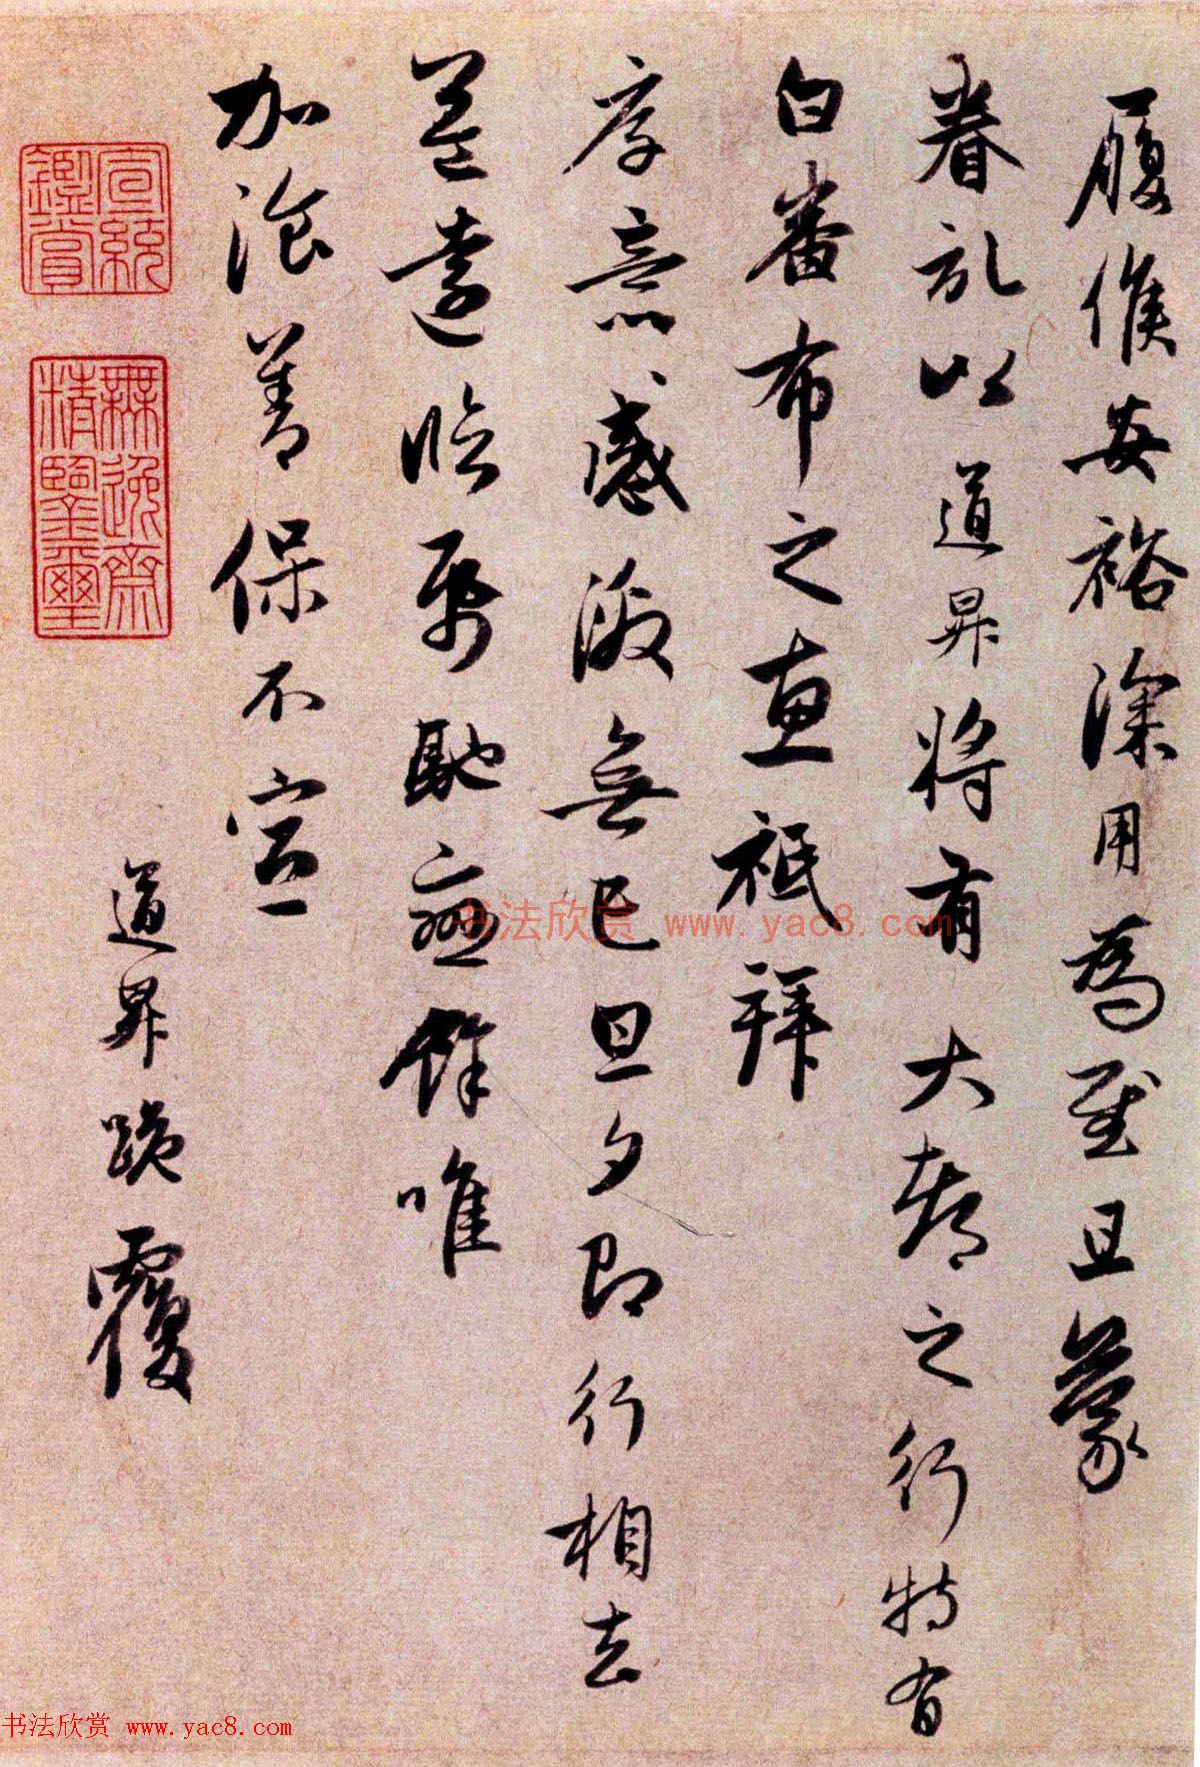 履候安裕深用為慰且蒙
眷私以道昇將有大都之行特有
白番布之惠祗拜
厚意感激無已旦夕即行相去
益遠臨紙馳戀餘唯
加飡善保不宣
道昇跪覆
宣統鑑賞
無逸齋精鑒璽
书法欣赏 www.yac8.com
书法欣赏 www.yac8.com